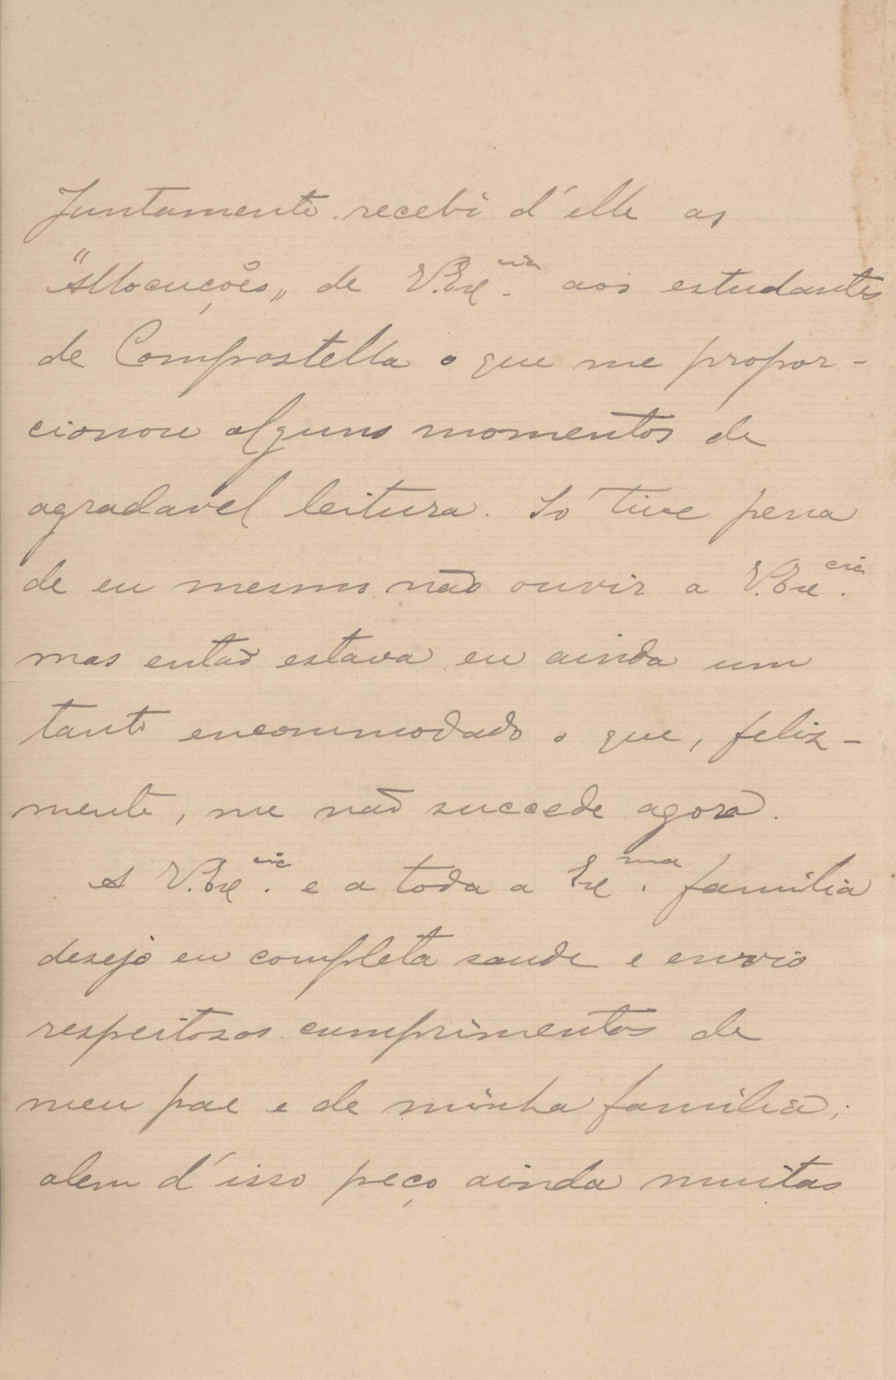 Juntamente recebi d'elle as
"Allocuções„ de V.Ex.cia aos estudantes
de Compostella o que me propor-
cionou alguns momentos de
agradavel leitura. Só tive pena
de eu mesmo não ouvir a V.Ex.cia
mas então estava eu ainda um
tanto encommodado o que, feliz-
mente, me não succede agora.
A V.Ex.cia e a toda a Ex.ma familia
desejo eu completa saude e envio
respeitosos cumprimentos de
meu pae e de minha familia;
alem d'isso peço ainda muitas